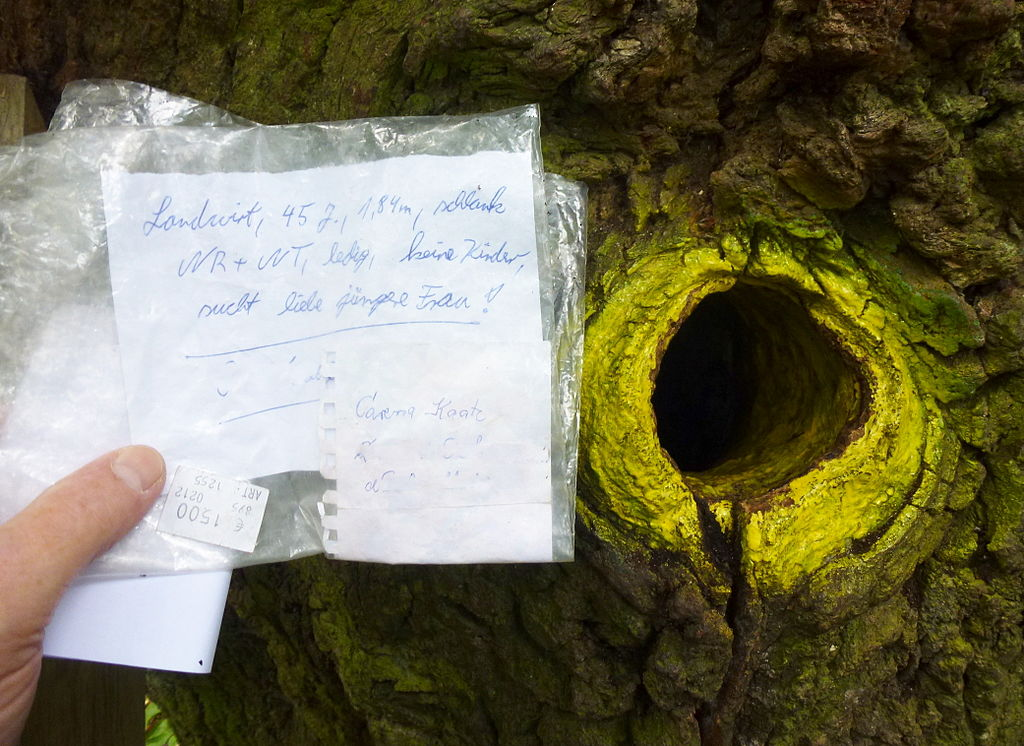 Landwirt, 45 J., 1,84m, schlank
NR + NT, ledig, keine Kinder,
sucht liebe jüngere Frau!
€ 1500
895 0212
ART. 1255